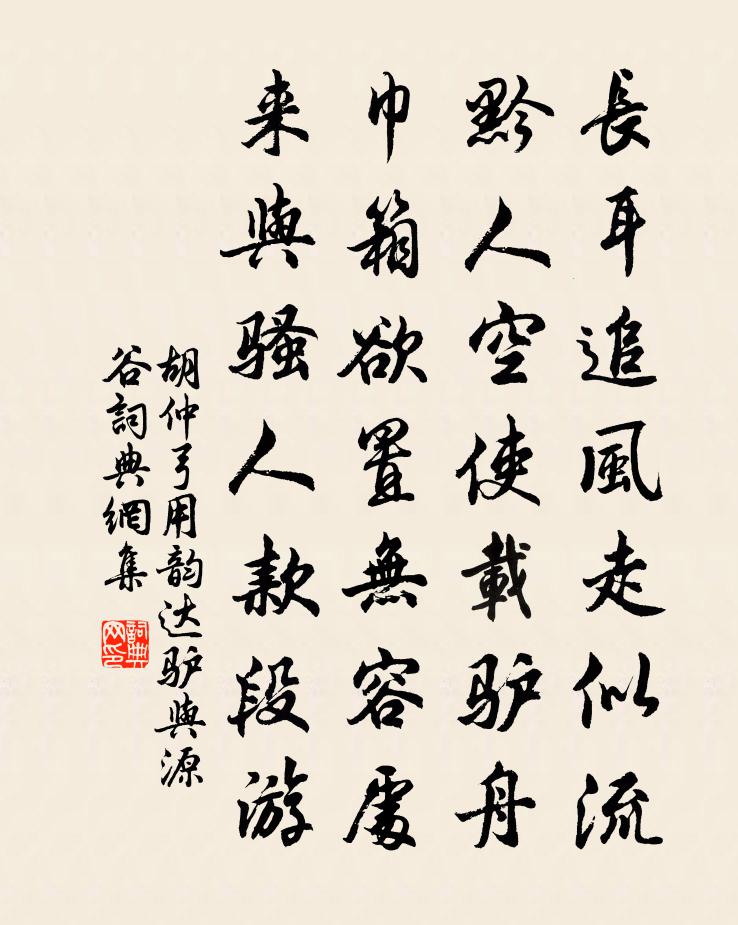 長耳追風走似流
黔人空使載驴舟
巾箱欲置無容處
来與騷人款段游
胡仲弓用韵达驴與源
谷詞典網集
詞典網印